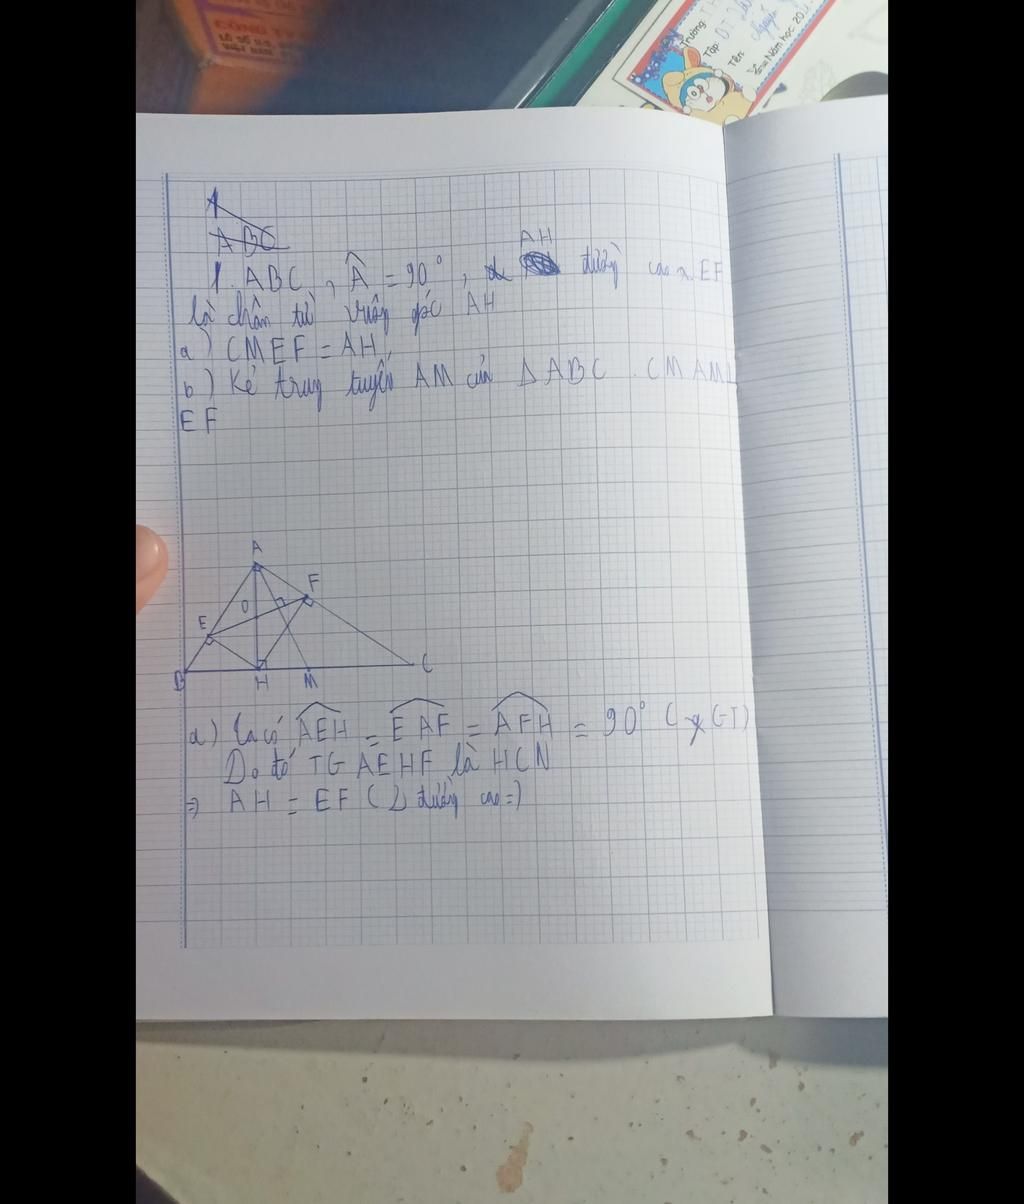 CÔNG T
Trường: TH
Tập:
Tên: Nguyễn
Năm học 20
A
ABC
AH
1. ABC, Â = 90°, đường cao. EF
là chân từ vuông góc AH
a) CM EF = AH
b) Kẻ trung tuyến AM của ΔABC. CM AM⊥
EF
A
F
O
E
B
H
M
C
a) Ta có AEH = EAF = AFH = 90° ( GT)
Do đó TG AEHF là HCN
=> AH = EF (2 đường cao =)